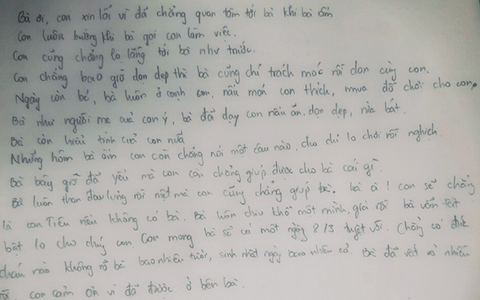 Bà ơi, con xin lỗi vì đã chẳng quan tâm tới bà khi bà ốm
Con luôn bướng khi bà gọi con làm việc.
Con cũng chẳng lo lắng tới bà như trước.
Con chẳng bao giờ dọn dẹp thì bà cũng chỉ trách móc rồi dọn cùng con.
Ngày còn bé, bà luôn ở cạnh con, nấu món con thích, mua đồ chơi cho con,
Bà như người mẹ của con ý, bà đã dạy con nấu ăn, dọn dẹp, rửa bát.
Bà còn hiểu tính của con nữa
Nhưng hôm bà ốm con còn chẳng nói một câu nào, cho chỉ lo chơi rồi nghịch
Bà bây giờ đã yếu mà con còn chẳng giúp được cho bà cái gì
Bà luôn than đau lưng rồi mệt mà con cũng chẳng giúp bà. 1 con sẽ chẳng
là con nếu không có bà. Bà luôn chịu khổ một mình, bà vốn tất
bật lo cho con Con mong bà sẽ có một ngày 8/3 tuyệt vời. Cháu có
cháu nào không rõ bà bao nhiêu tuổi, sinh nhật ngày bao nhiêu cả. Bà đã vất vả nhiều
rồi, con cảm ơn vì đã được ở bên bà.